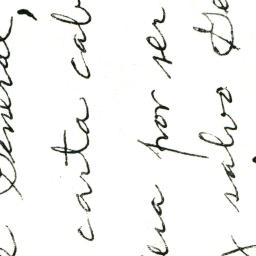 General,
carta cab
era por ser
y salvo Ge